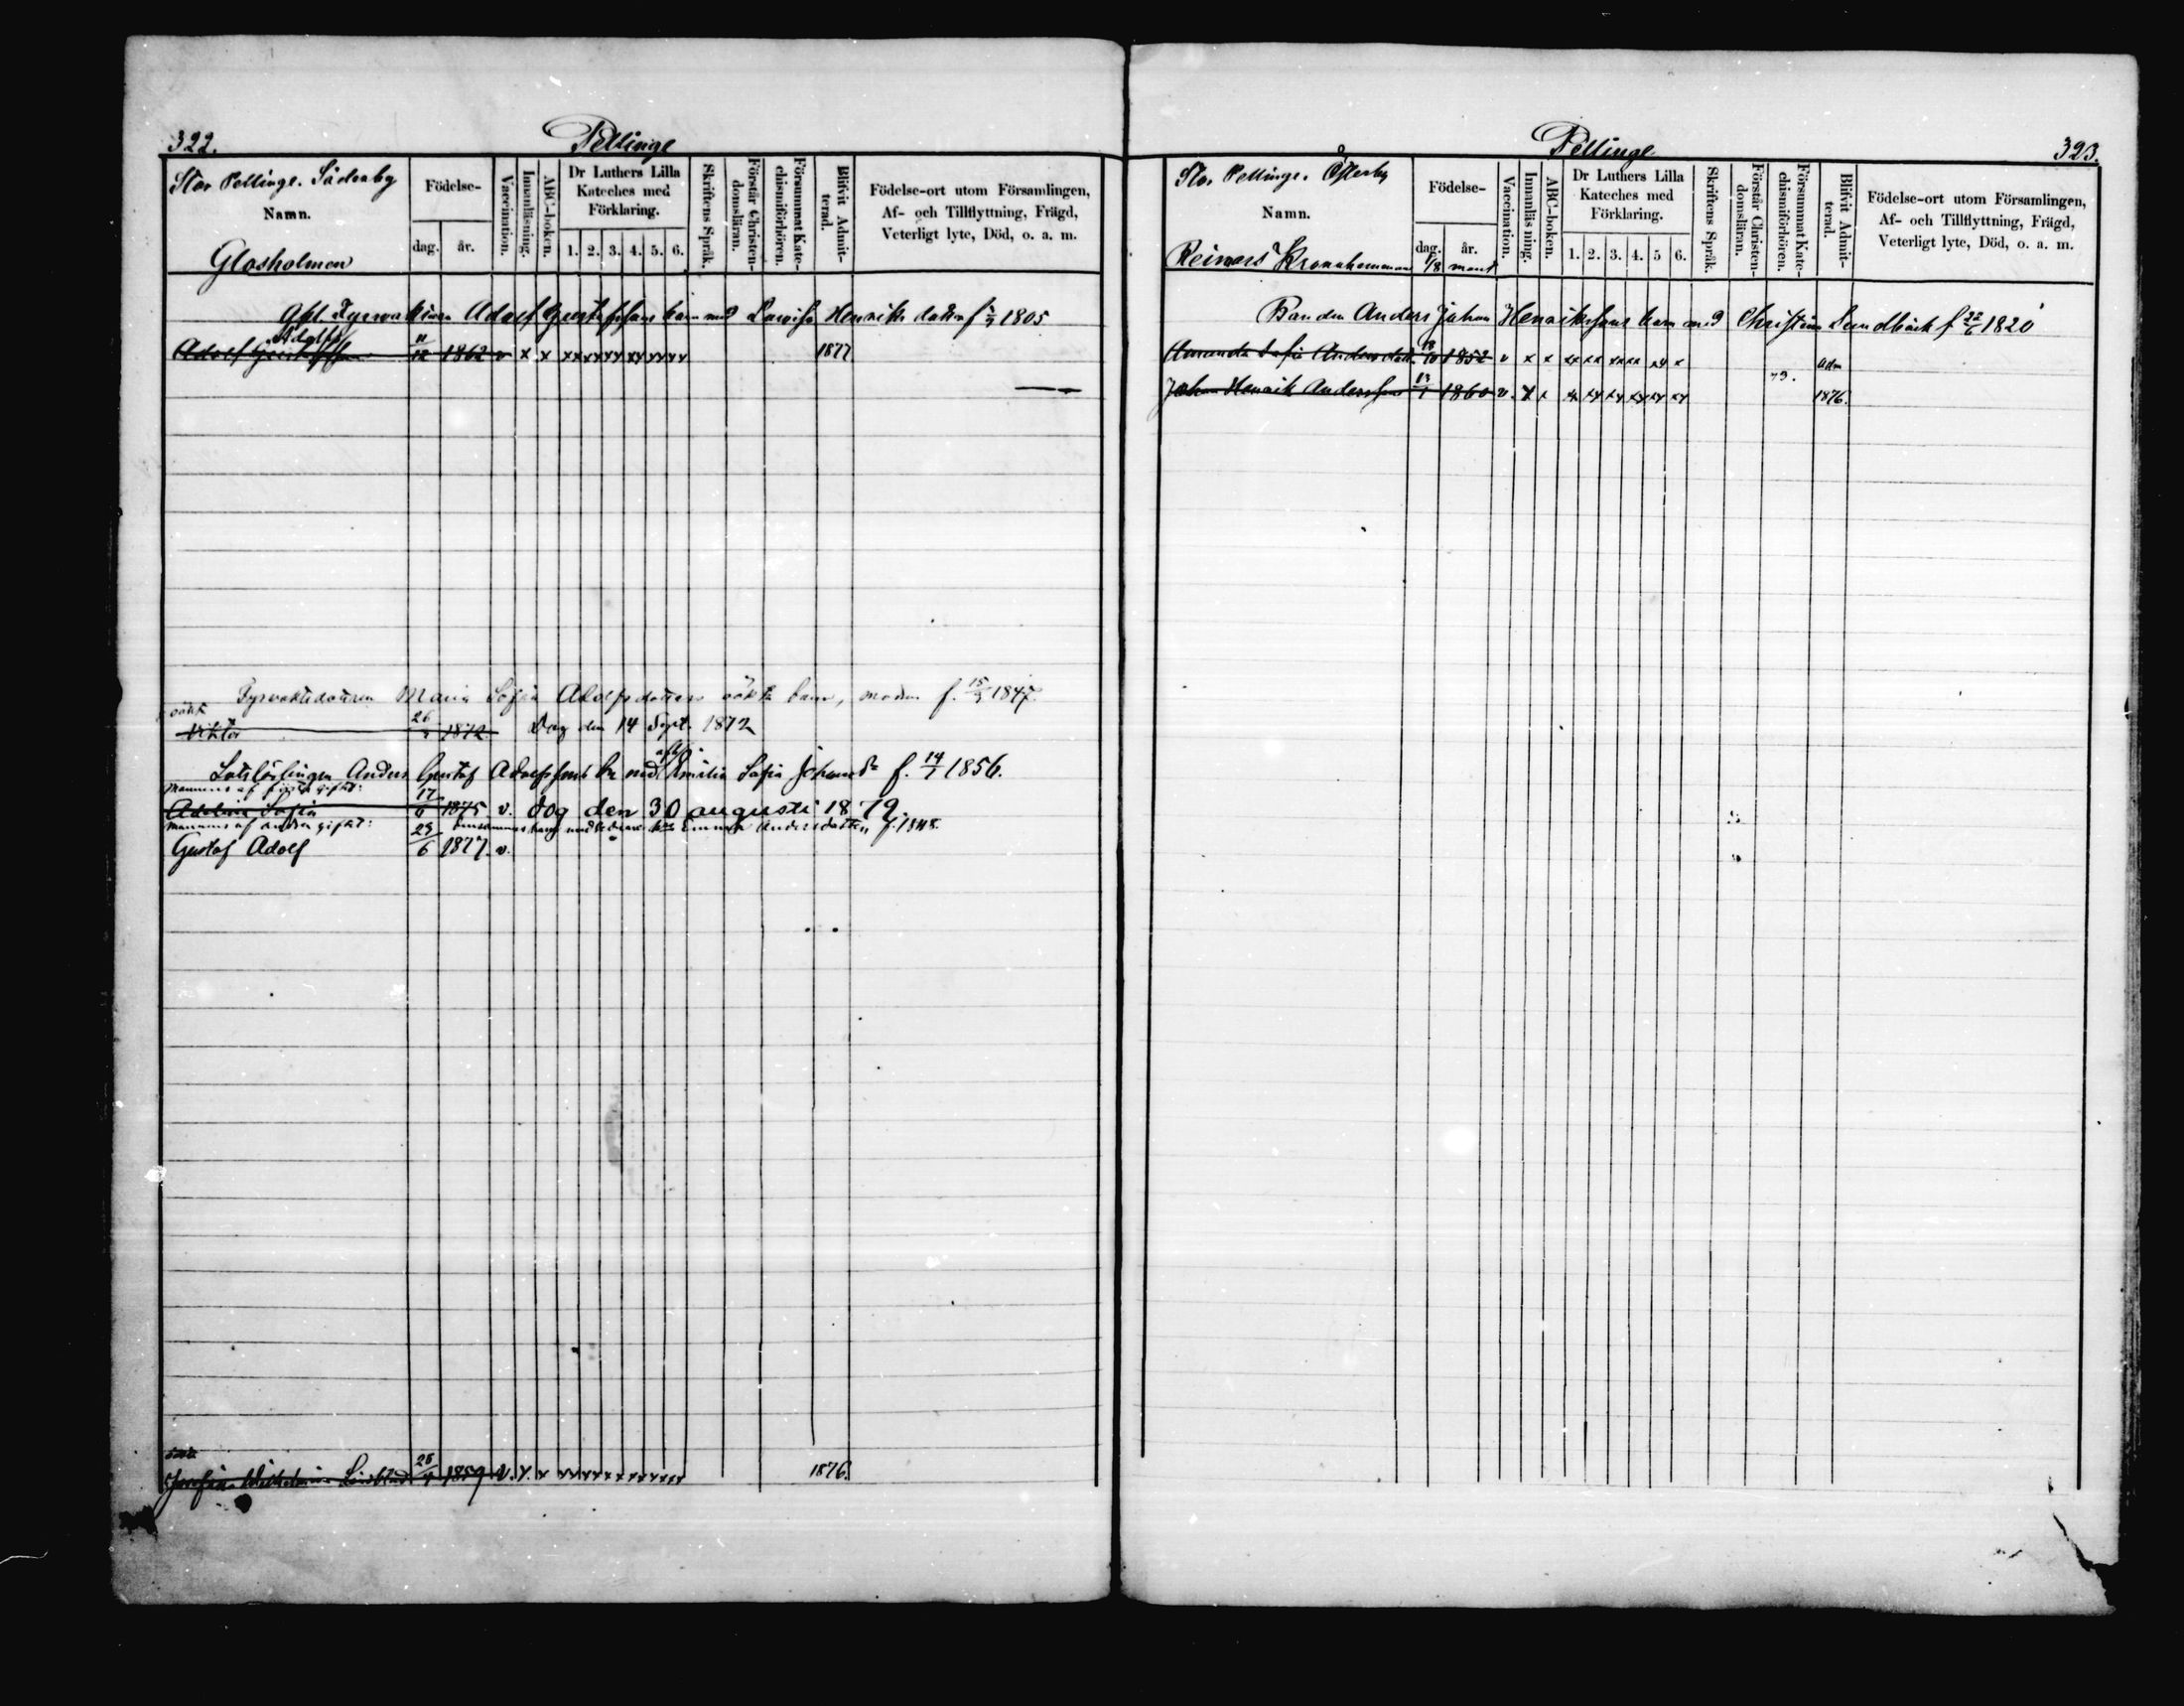 322.
Pellinge
Stor Pellinge. Söderby
Namn.
Glosholmen
Födelse-
dag.
år.
Vaccination.
Innanläsning.
ABC-boken.
Dr Luthers Lilla
Kateches med
Förklaring.
1. 2. 3. 4. 5. 6.
Skriftens Språk.
Förstår Christen-
domsläran.
Försummat Kate-
chismiförhören.
Blifvit Admit-
terad.
Födelse-ort utom Församlingen,
Af- och Tillflyttning, Frägd,
Veterligt lyte, Död, o. a. m.
Adolf Gustafssons barn med Lovisa Henriks dotter f 1805
Adolfs
Adolf Gustafsson 11/12 1862 v x x xx xx xx xx xx xx 1877
Maria Sofia Adolfsdotters oäkta barn, modern f. 15/3 1847.
oäkt
Viktor 26 1872. Dog den 14 Sept. 1872
aflid
Lotslärlingen Anders Gustaf Adolfssons br med Emilia Sofia Johansdr f. 14/7 1856.
Mannens af första giftet:
Adolina Sofia 17/6 1875 v. dog den 30 augusti 1879.
Mannens af andra giftet: Emma Andersdotter f. 1848.
Gustaf Adolf 29/6 1877. v.
Josefina Wilhelmina Lindblad 28 1859 v. x. x xx xx xx xx xx xx 1876.
Pellinge
323.
Stor Pellinge. Österby
Namn.
Reimars Kronohemman 1/8 mant
Födelse-
dag.
år.
Vaccination.
Innanläsning.
ABC-boken.
Dr Luthers Lilla
Kateches med
Förklaring.
1. 2. 3. 4. 5 6.
Skriftens Språk.
Förstår Christen-
domsläran.
Försummat Kate-
chismiförhören.
Blifvit Admit-
terad.
Födelse-ort utom Församlingen,
Af- och Tillflyttning, Frägd,
Veterligt lyte, Död, o. a. m.
Bonden Anders Johan Henrikssons barn med Christina Lundbäck f 22/6 1820
Amanda Sofia Andersdott. 1852 v x x xx xx xx xx xx x adm
73.
Johan Henrik Andersson 13/1 1860 v. x x x xx xx xx xx xx 1876.